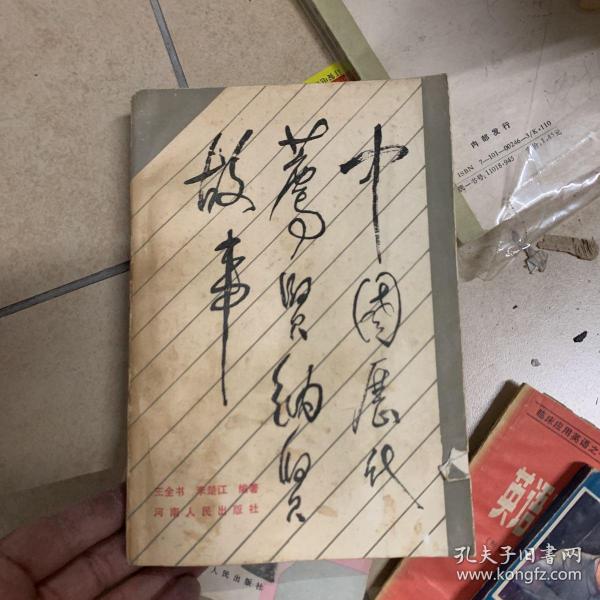 中国历代
荐贤纳贤
故事
王全书 李楚江 编著
河南人民出版社
内部发行
ISBN 7-101-00246-3/K·110
统一书号:11018·945
1.45元
临床应用英语之
英语
人民出版社
孔夫子旧书网
www.kongfz.com